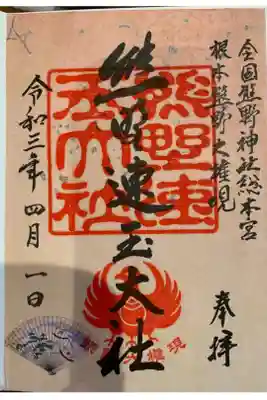 全国熊野神社総本宮
根本熊野大権現
奉拝
熊野速玉大社
令和三年四月一日
熊野速
玉大社
権現